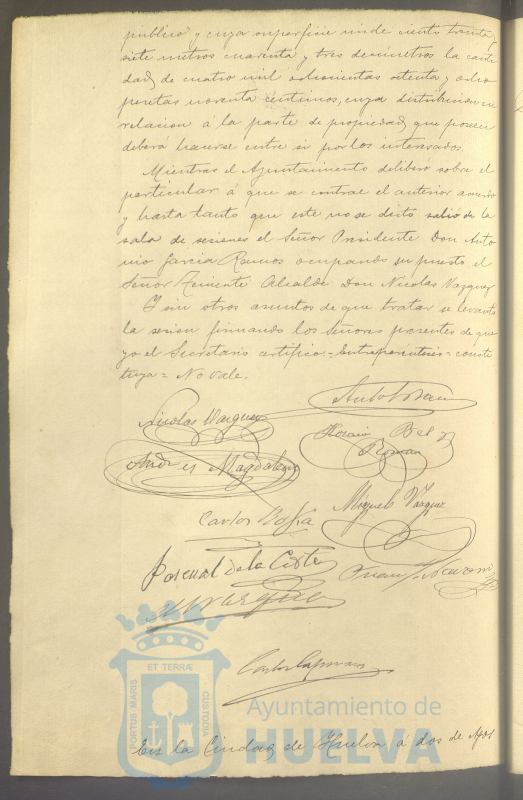 publico y cuya superficie mide ciento treinta y
siete metros cuarenta y tres decimetros la canti
dad de cuatro mil ochocientas setenta y ocho
pesetas noventa centimos, cuya distribucion en
relacion á la parte de propiedad que poseen
deberá hacerse entre si por los interesados.
Mientras el Ayuntamiento deliberó sobre el
particular á que se contrae el anterior acuerdo
y hasta tanto que este no se dictó salió de la
sala de sesiones el Señor Presidente Don Anto
nio Garcia Ramos ocupando su puesto el
Señor Teniente Alcalde Don Nicolas Vazquez
Y sin otros asuntos de que tratar se levantó
la sesion firmando los Señores presentes de que
yo el Secretario certifico.= Entreparentesis = consti
tuya = No vale.
Nicolas Vazquez
Horacio Bel
Roman
Andres Magdaleno
Miguel Vazquez
Carlos
Pascual de la Corte
Juan J.
Vazquez
Carlos
PORTUS MARIS ET TERRÆ CUSTODIA
Ayuntamiento de
HUELVA
En la Ciudad de Huelva á dos de Agos